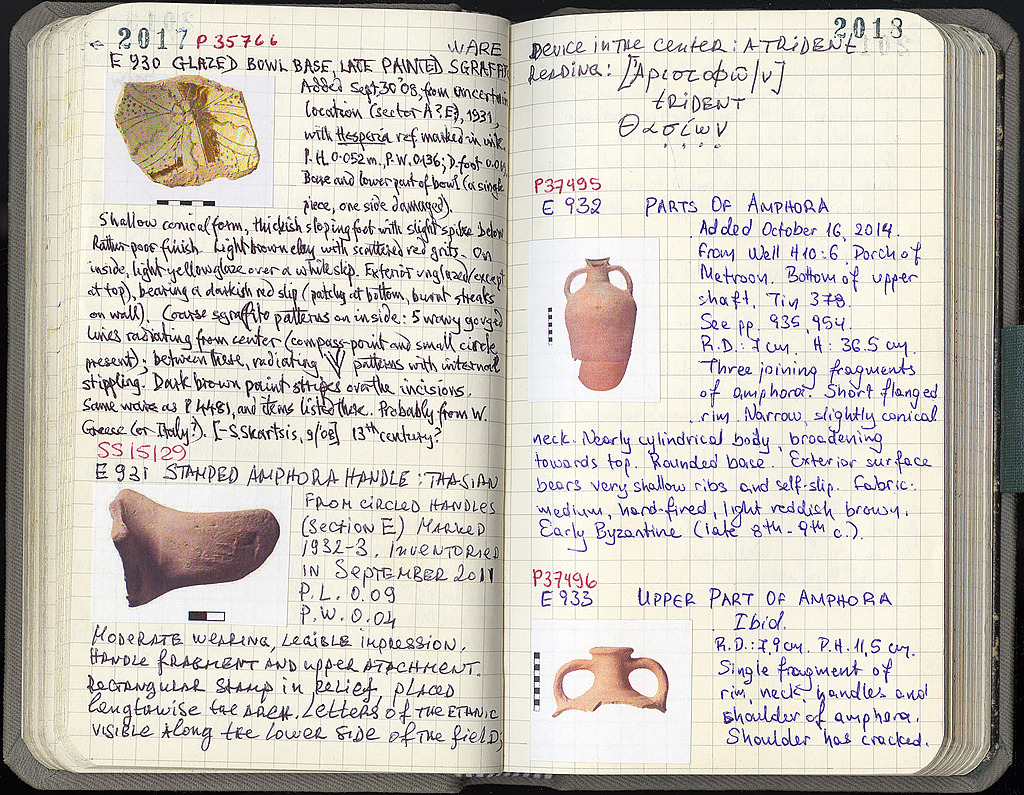 2017 P 35766
← WARE
E 930 GLAZED BOWL BASE, LATE PAINTED SGRAFFITO
Added Sept. 30 '08, from uncertain
location (sector A? E), 1931,
with Hesperia ref. marked in ink.
P.H. 0.052 m. P.W. 0.136; D. foot
Base and lower part of bowl (a single
piece, one side damaged).
Shallow conical form, thickish sloping foot with slight spike below
Rather poor finish. Light brown clay with scattered red grits. On
inside, light yellow glaze over a white slip. Exterior unglazed (except
at top), bearing a darkish red slip (patchy at bottom, burnt streaks
on wall). Coarse sgraffito patterns on inside: 5 wavy gouged
lines radiating from center (compass-point and small circle
present); between these, radiating V patterns with internal
stippling. Dark brown paint stripes over the incisions.
Same ware as P 4481, and items listed there. Probably from W.
Greece (or Italy?). [-S. Skartsis, 9/'08] 13th century?
SS 15129
E 931 STAMPED AMPHORA HANDLE : THASIAN
FROM CIRCLED HANDLES
(SECTION E) MARKED
1932-3. INVENTORIED
IN SEPTEMBER 2011
P.L. 0.09
P.W. 0.04
MODERATE WEARING, LEGIBLE IMPRESSION.
HANDLE FRAGMENT AND UPPER ATACHMENT.
RECTANGULAR STAMP IN RELIEF, PLACED
LENGTHWISE THE ARCH. LETTERS OF THE ETHNIC
VISIBLE ALONG THE LOWER SIDE OF THE FIELD;
2018
DEVICE IN THE CENTER : A TRIDENT
READING: [Ἀριστοφῶ/ν]
TRIDENT
Θασίων
P37495
E 932 PARTS OF AMPHORA
Added October 16, 2014.
From Well 410:6, Porch of
Metroon. Bottom of upper
shaft, Tin 378.
See pp. 935, 954.
R.D.: 7 cm. H: 36.5 cm.
Three joining fragments
of amphora. Short flanged
rim. Narrow, slightly conical
neck. Nearly cylindrical body, broadening
towards top. Rounded base. Exterior surface
bears very shallow ribs and self-slip. Fabric:
medium, hard-fired, light reddish brown.
Early Byzantine (late 8th - 9th c.).
P37496
E 933 UPPER PART OF AMPHORA
Ibid.
R.D.: 7,9 cm. P.H. 11,5 cm.
Single fragment of
rim, neck, handles and
shoulder of amphora.
Shoulder has cracked.